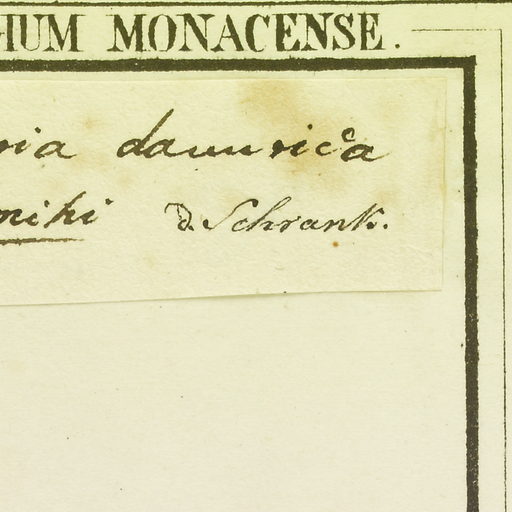 HUM MONACENSE.
ria daurica
mihi D. Schrank.